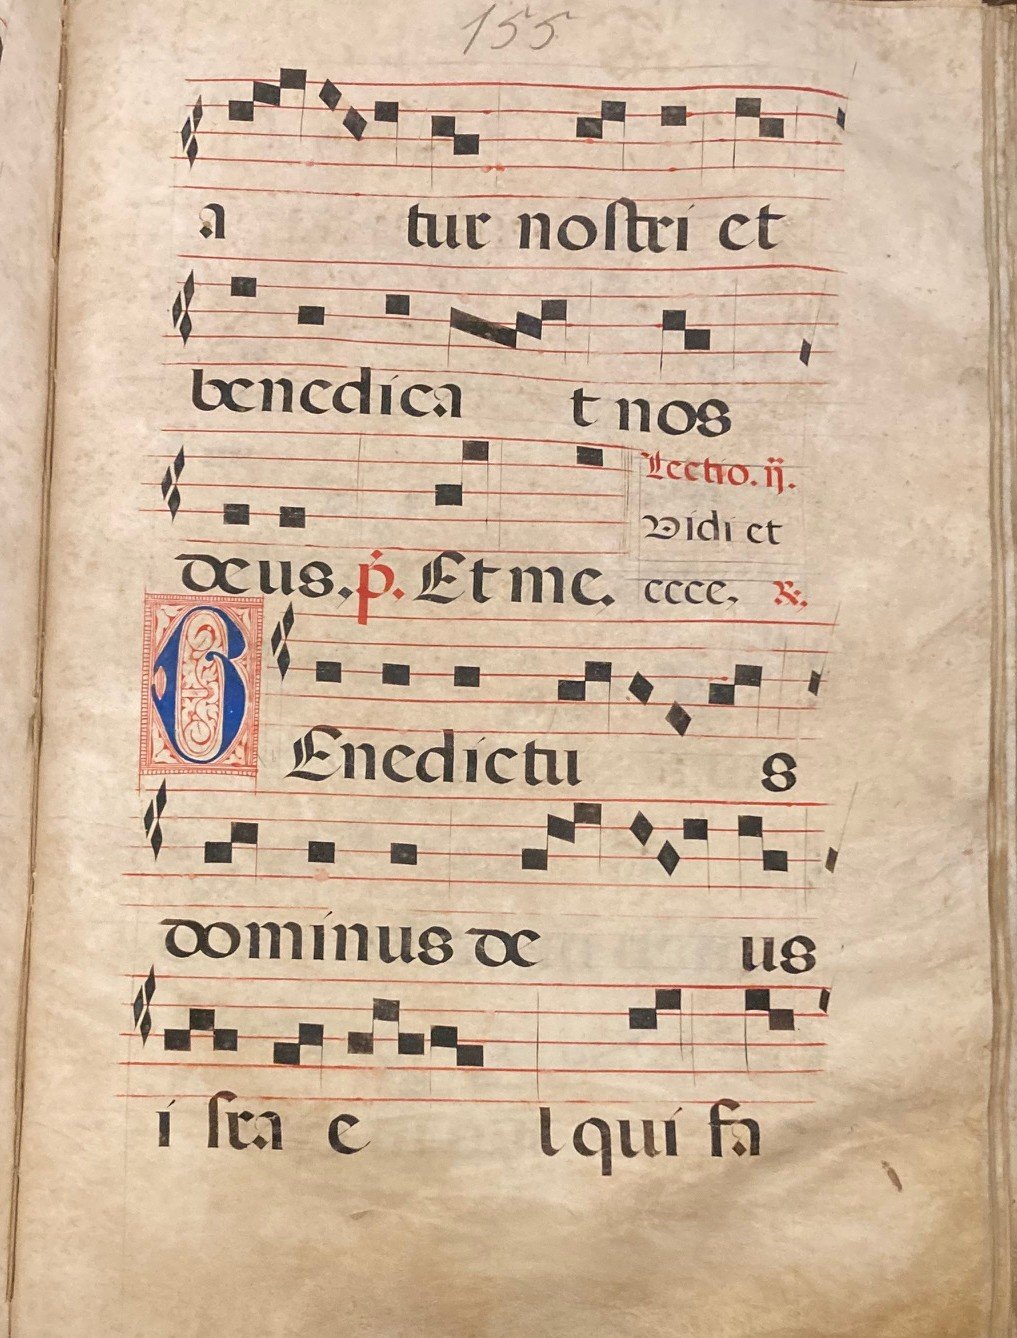 155
a tur noſtri et
benedica t nos
deus. p̄. Et me.
Lectio. ij.
Vidi et
ecce, ℞.
BEnedictu s
dominus de us
i ſra e l qui fa